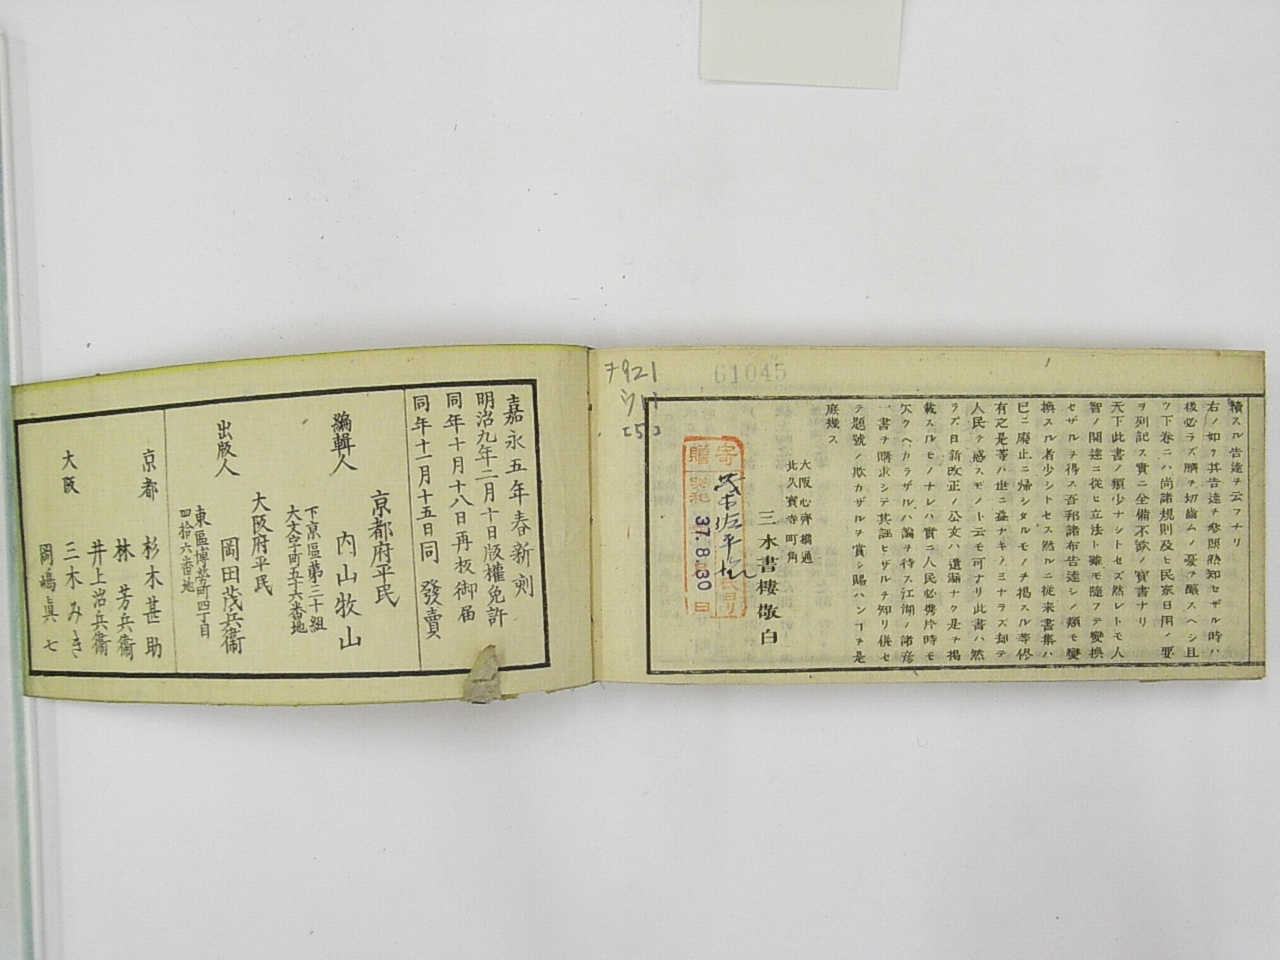 積スル告達ヲ云フナリ
右ノ如ク其告達ヲ参照熟知セザル時ハ
後必ラズ臍ヲ切齒ムノ憂ヲ醸スヘシ且
ツ下巻ニハ尚諸規則及ヒ民家日用ノ要
ヲ列記ス實ニ全備不欲ノ寳書ナリ
天下此書ノ類少ナシトセズ然レトモ人
智ノ開達ニ從ヒ立法ト雖モ隨テ變換
セザルヲ得ス吾邦諸布告達シノ類モ變
換スル者少シトセス然ルニ従来書集ハ
已ニ廃止ニ帰シタルモノヲ掲スル等
有之是等ハ世ニ益ナキノミナラズ却テ
人民ヲ惑スモノト云モ可ナリ此書ハ然
ラズ日新改正ノ公文ハ遺漏ナク是ヲ掲
載スルモノナレハ實ニ人民必携片時モ
欠クヘカラザルハ論ヲ待ス江湖ノ諸彦
一書ヲ購求シテ其誣ヒザルヲ知リ併セ
テ題號ノ欺カザルヲ賞シ賜ハンヿヲ是
庶幾ス
大阪心齊橋通
北久寳寺町角
三木書樓敬白
寄贈
37.8.30
61045
7921
ウ1
[5]
嘉永五年春新刻
明治九年二月十日版權免許
同年十月十八日再板御届
同年十一月十五日同 發賣
編輯人
京都府平民
内山牧山
下京區第三十組
大文字町五十六番地
出版人
大阪府平民
岡田茂兵衞
東區博労町四丁目
四拾六番地
京都 杉本甚助
林 芳兵衞
井上治兵衞
大阪 三木みき
岡嶋眞七